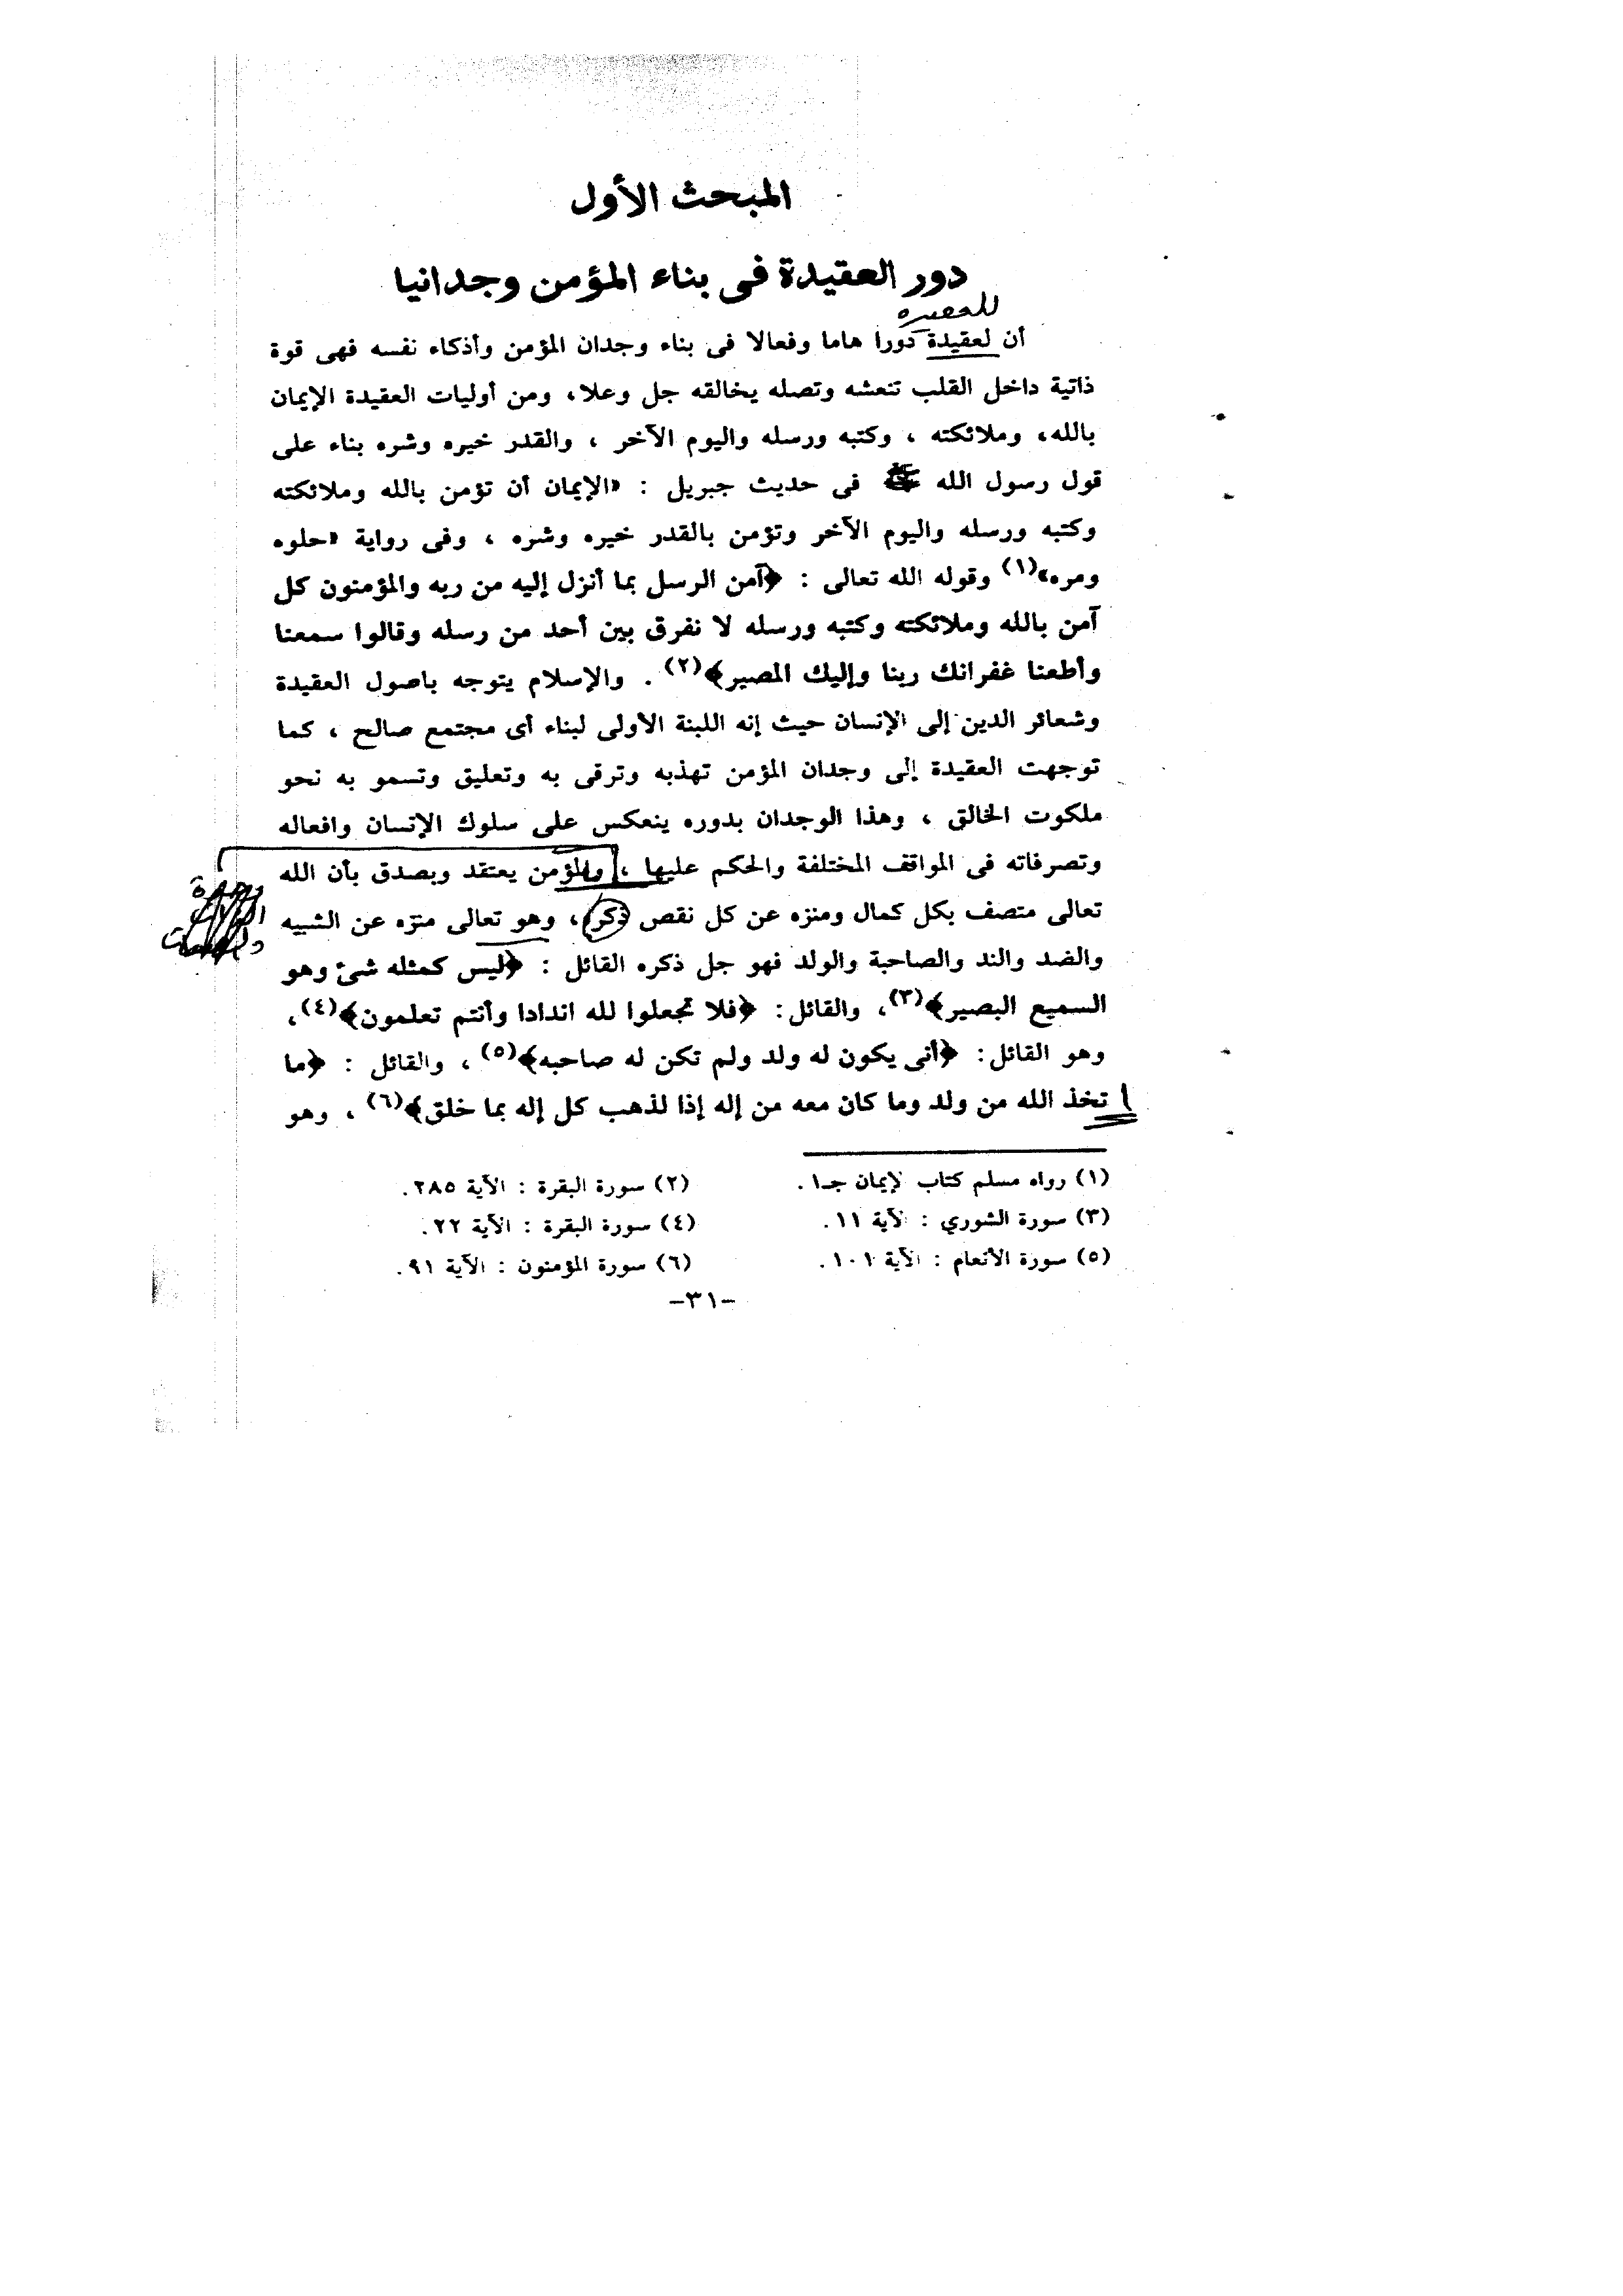 المبحث الأول
دور العقيدة فى بناء المؤمن وجدانيا
للعقيدة
أن لعقيدة دورا هاما وفعالا فى بناء وجدان المؤمن وأذكاء نفسه فهى قوة
ذاتية داخل القلب تنعشه وتصله يخالقه جل وعلا، ومن أوليات العقيدة الإيمان
بالله، وملائكته ، وكتبه ورسله واليوم الآخر ، والقدر خيره وشره بناء على
قول رسول الله ﷺ فى حديث جبريل : «الإيمان أن تؤمن بالله وملائكته
وكتبه ورسله واليوم الآخر وتؤمن بالقدر خيره وشره ، وفى رواية «حلوه
ومره»(١) وقوله الله تعالى : ﴿آمن الرسل بما أنزل إليه من ربه والمؤمنون كل
آمن بالله وملائكته وكتبه ورسله لا نفرق بين أحد من رسله وقالوا سمعنا
وأطعنا غفرانك ربنا وإليك المصير﴾(٢) . والإسلام يتوجه باصول العقيدة
وشعائر الدين إلى الإنسان حيث إنه اللبنة الأولى لبناء أى مجتمع صالح ، كما
توجهت العقيدة إلى وجدان المؤمن تهذبه وترقى به وتعليق وتسمو به نحو
ملكوت الخالق ، وهذا الوجدان بدوره ينعكس على سلوك الإنسان وافعاله
وتصرفاته فى المواقف المختلفة والحكم عليها ، والمؤمن يعتقد وبصدق بأن الله
تعالى متصف بكل كمال ومنزه عن كل نقص ذكر، وهو تعالى منزه عن الشبيه
والضد والند والصاحبة والولد فهو جل ذكره القائل : ﴿ليس كمثله شئ وهو
السميع البصير﴾(٣)، والقائل: ﴿فلا تجعلوا لله اندادا وأنتم تعلمون﴾(٤)،
وهو القائل: ﴿أنى يكون له ولد ولم تكن له صاحبه﴾(٥) ، والقائل : ﴿ما
ا تخذ الله من ولد وما كان معه من إله إذا لذهب كل إله بما خلق﴾(٦) ، وهو
(١) رواه مسلم كتاب لإيمان جـ١ .
(٢) سورة البقرة : الآية ٢٨٥ .
(٣) سورة الشوري : لآية ١١ .
(٤) سورة البقرة : الآية ٢٢ .
(٥) سورة الأنعام : الآية ١٠١ .
(٦) سورة المؤمنون : الآية ٩١ .
-٣١-